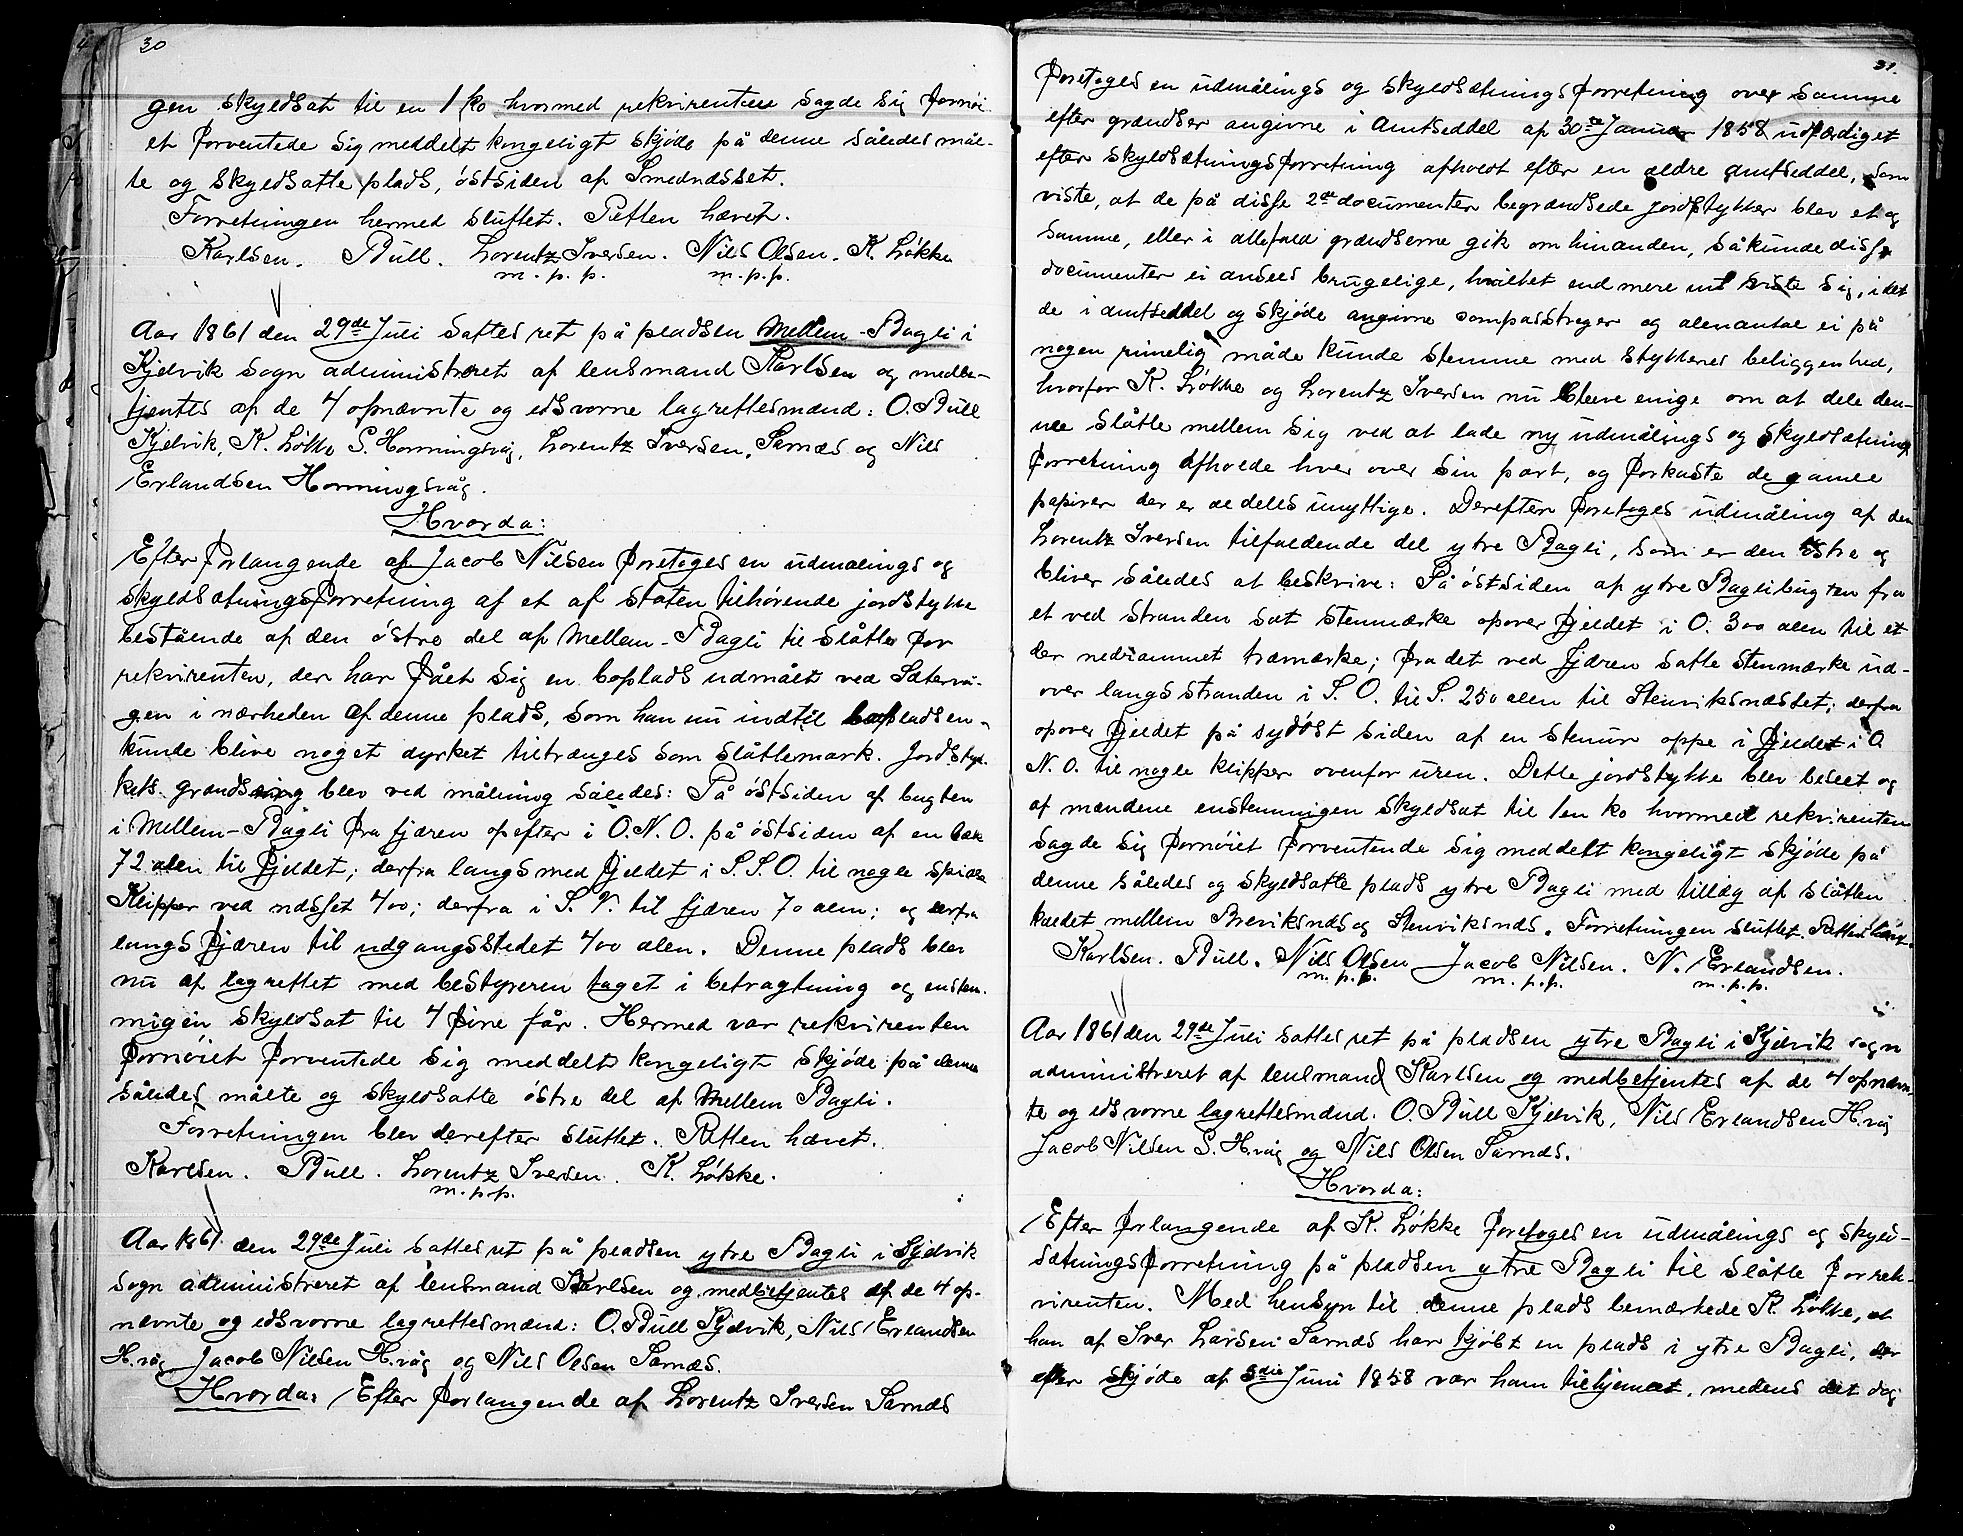 30
gen skyldsat til en 1 ko hvormed rekvirenten sagde sig fornøi-
et forventede sig meddelt kongeligt skjøde på denne således mål-
te og skyldsatte plads, østsiden af Smednæsset.
Forretningen hermed sluttet. Retten hævet.
Karlsen. Bull. Lorentz Iversen. Nils Olsen. K. Løkke
m. p. p. m. p. p.
Aar 1861 den 29de Juli sattes ret på pladsen Mellem-Bagli i
Kjelvik sogn administreret af lensmand Karlsen og medbe-
tjentes af de 4 opnævnte og edsvorne lagrettesmænd: O. Bull
Kjelvik, K. Løkke S. Honningsvåg, Lorentz Iversen, Sarnæs og Nils
Erlandsen Honningsvåg.
Hvorda:
Efter forlangende af Jacob Nilsen foretoges en udmålings og
skyldsætningsforretning af et af staten tilhørende jordstykke
bestående af den østre del af Mellem-Bagli til slåtte for
rekvirenten, der har fået sig en boplads udmålt ved Sætervå-
gen i nærheden af denne plads, som han nu indtil bopladsen
kunde blive noget dyrket tiltrænges som slåttemark. Jordstyk-
kets grændsning blev ved måling således: På østsiden af bugten
i Mellem-Bagli fra fjæren opefter i O. N. O. på østsiden af en bæk
72 alen til fjeldet; derfra langs med fjeldet i S. S. O. til nogle spidse
Klipper ved næsset 400; derfra i S. V. til fjæren 70 alen; og derfra
langs fjæren til udgangsstedet 400 alen. Denne plads blev
nu af lagrettet med bestyreren taget i betragtning og enstem-
migen skyldsat til 4 fire får. Hermed var rekvirenten
fornøiet forventede sig meddelt kongeligt skjøde på denne
således målte og skyldsatte østre del af Mellem Bagli.
Forretningen blev derefter sluttet. Retten hævet.
Karlsen. Bull. Lorentz Iversen. K. Løkke.
m. p. p.
Aar 1861 den 29de Juli sattes ret på pladsen ytre Bagli i Kjelvik
sogn administreret af lensmand Karlsen og medbetjentes af de 4 op-
nævnte og edsvorne lagrettesmænd: O. Bull Kjelvik, Nils Erlandsen
H.våg Jacob Nilsen H.våg og Nils Olsen Sarnæs.
Hvorda: Efter forlangende af Lorentz Iversen Sarnæs
31.
foretoges en udmålings og skyldsætningsforretning over samme
efter grændser angivne i Amtseddel af 30te Januar 1858 udfærdiget
efter skyldsætningsforretning afholdt efter en ældre amtseddel, som
viste, at de på disse 2de documenter begrændsede jordstykker blev et og
samme, eller i allefald grændserne gik om hinanden, så kunde disse
documenter ei ansees brugelige, hvilket end mere viste sig, idet
de i amtseddel og skjøde angivne compasstreger og alenantal ei på
nogen rimelig måde kunde stemme med stykkenes beliggenhed,
hvorfor K. Løkke og Lorentz Iversen nu bleve enige om at dele den-
ne slåtte mellem sig ved at lade ny udmålings og skyldsætnings
forretning afholde hver over sin part, og forkaste de gamle
papirer der er aldeles unyttige. Derefter foretoges udmåling af den
Lorentz Iversen tilfaldende del ytre Bagli, som er den østre og
bliver således at beskrive: På østsiden af ytre Baglibugten fra
et ved stranden sat stenmærke opover fjeldet i O. 300 alen til et
der nedrammet træmærke; fra det ved fjæren satte stenmærke ud-
over langs stranden i S. O. til S. 250 alen til Stenviksnæstet; derfra
opover fjeldet på sydøst siden af en stenur oppe i fjeldet i O
N. O. til nogle klipper ovenfor uren. Dette jordstykke blev beseet og
af mændene enstemmigen skyldsat til 1 en ko hvormed rekvirenten
sagde sig fornøiet forventende sig meddelt kongeligt skjøde på
denne således og skyldsatte plads ytre Bagli med tillæg af slåtten
kaldet mellem Breviksnæs og Stenviksnæs. Forretningen sluttet. Retten hævet.
Karlsen. Bull. Nils Olsen Jacob Nilsen. N. Erlandsen.
m. p. p. m. p. p. m. p. p.
Aar 1861 den 29de Juli sattes ret på pladsen ytre Bagli i Kjelvik sogn
administreret af lensmand Karlsen og medbetjentes af de 4 opnævn-
te og edsvorne lagrettesmænd: O. Bull Kjelvik, Nils Erlandsen H.våg
Jacob Nilsen S. H.våg og Nils Olsen Sarnæs.
Hvorda:
Efter forlangende af K. Løkke foretoges en udmålings og skyld-
sætningsforretning på pladsen ytre Bagli til slåtte for rek-
virenten. Med hensyn til denne plads bemærkede K. Løkke, at
han af Iver Larsen Sarnæs har kjøbt en plads i ytre Bagli, der
efter skjøde af 3die Juni 1858 var ham tilhjemlet, medens det dog